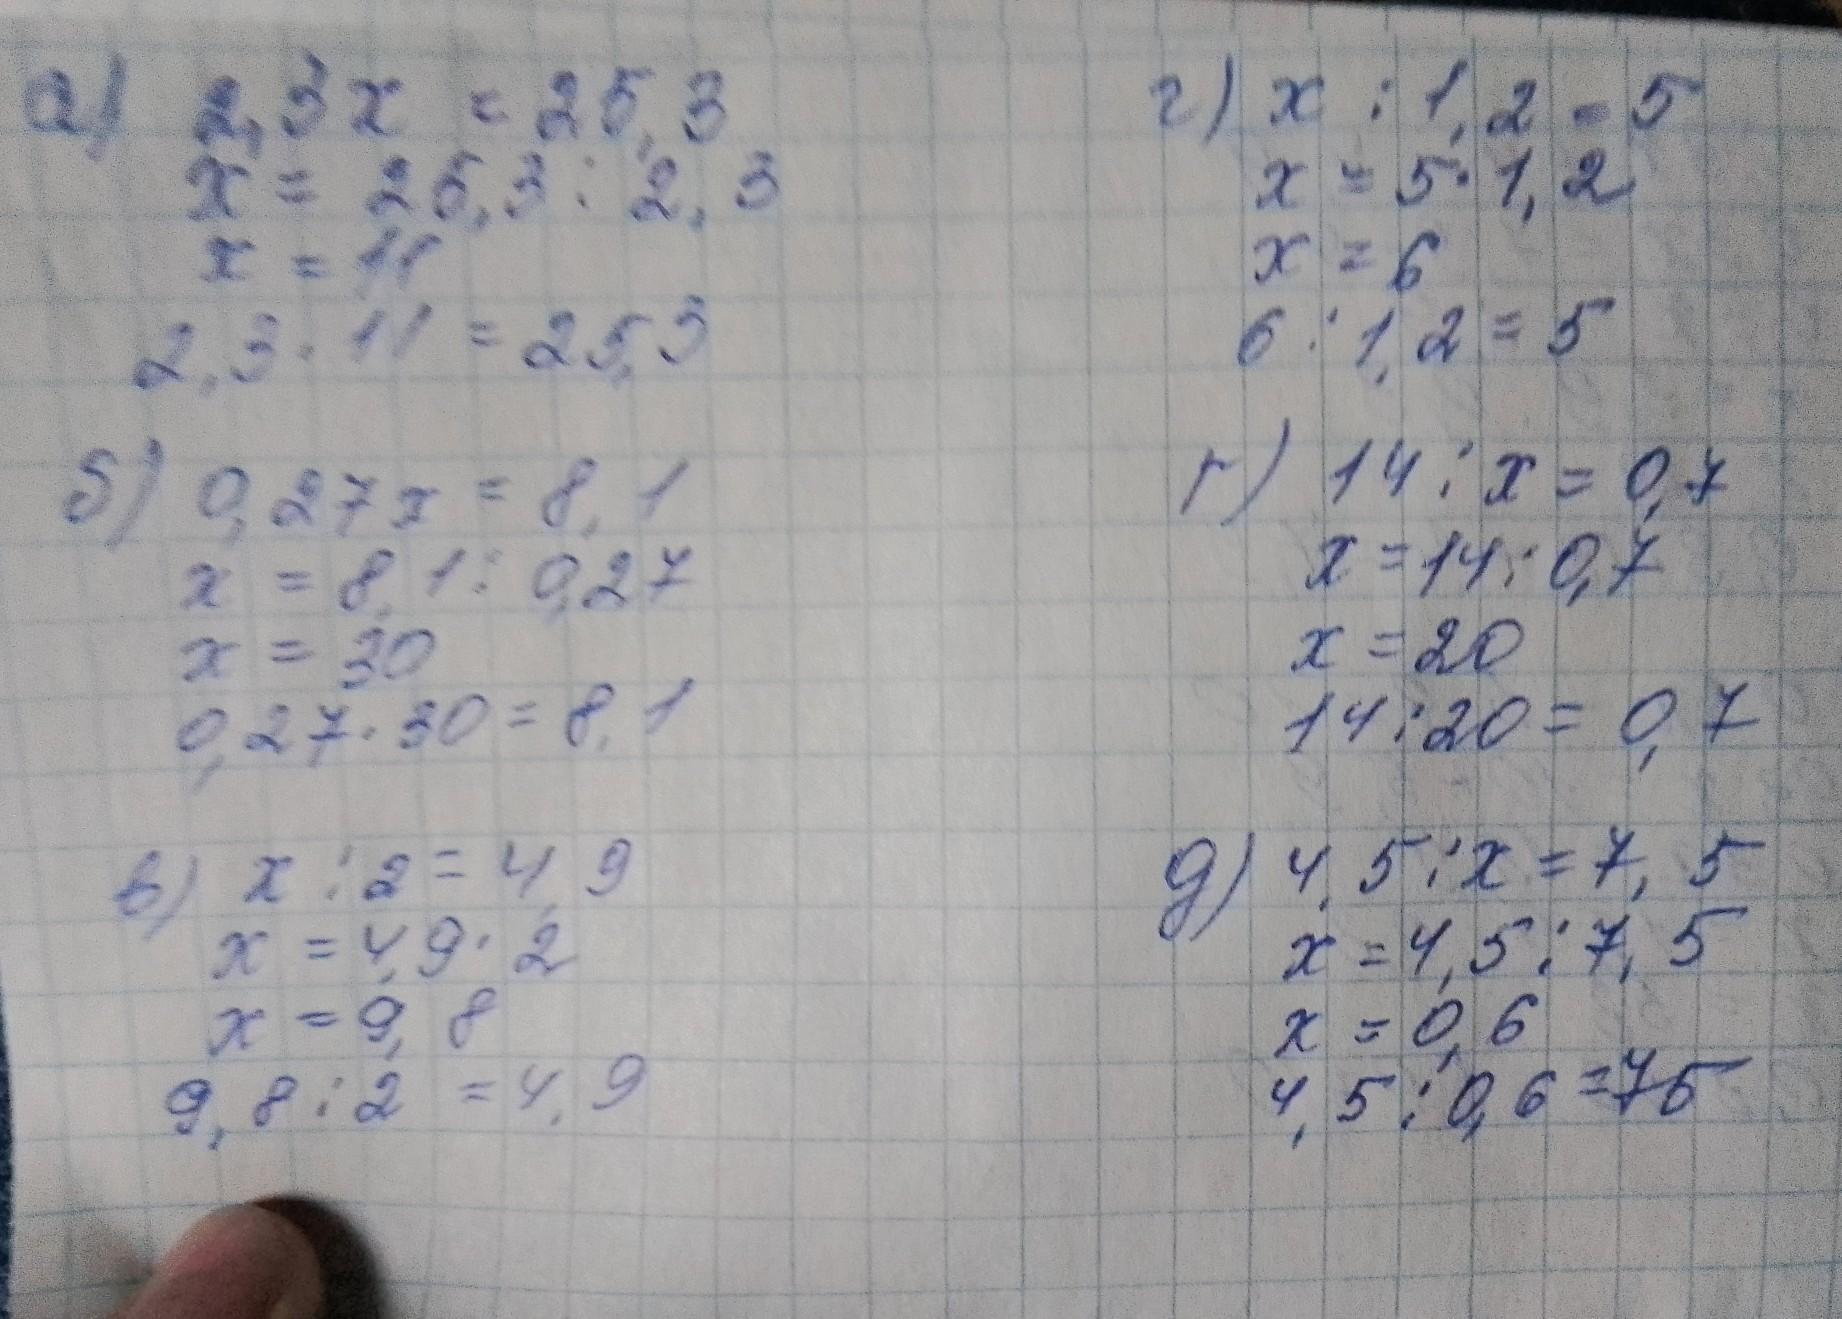 а) 2,3x = 25,3
x = 25,3 : 2,3
x = 11
2,3 · 11 = 25,3
б) 0,27x = 8,1
x = 8,1 : 0,27
x = 30
0,27 · 30 = 8,1
в) x : 2 = 4,9
x = 4,9 · 2
x = 9,8
9,8 : 2 = 4,9
г) x : 1,2 = 5
x = 5 · 1,2
x = 6
6 : 1,2 = 5
г) 14 : x = 0,7
x = 14 : 0,7
x = 20
14 : 20 = 0,7
д) 4,5 : x = 7,5
x = 4,5 : 7,5
x = 0,6
4,5 : 0,6 = 75